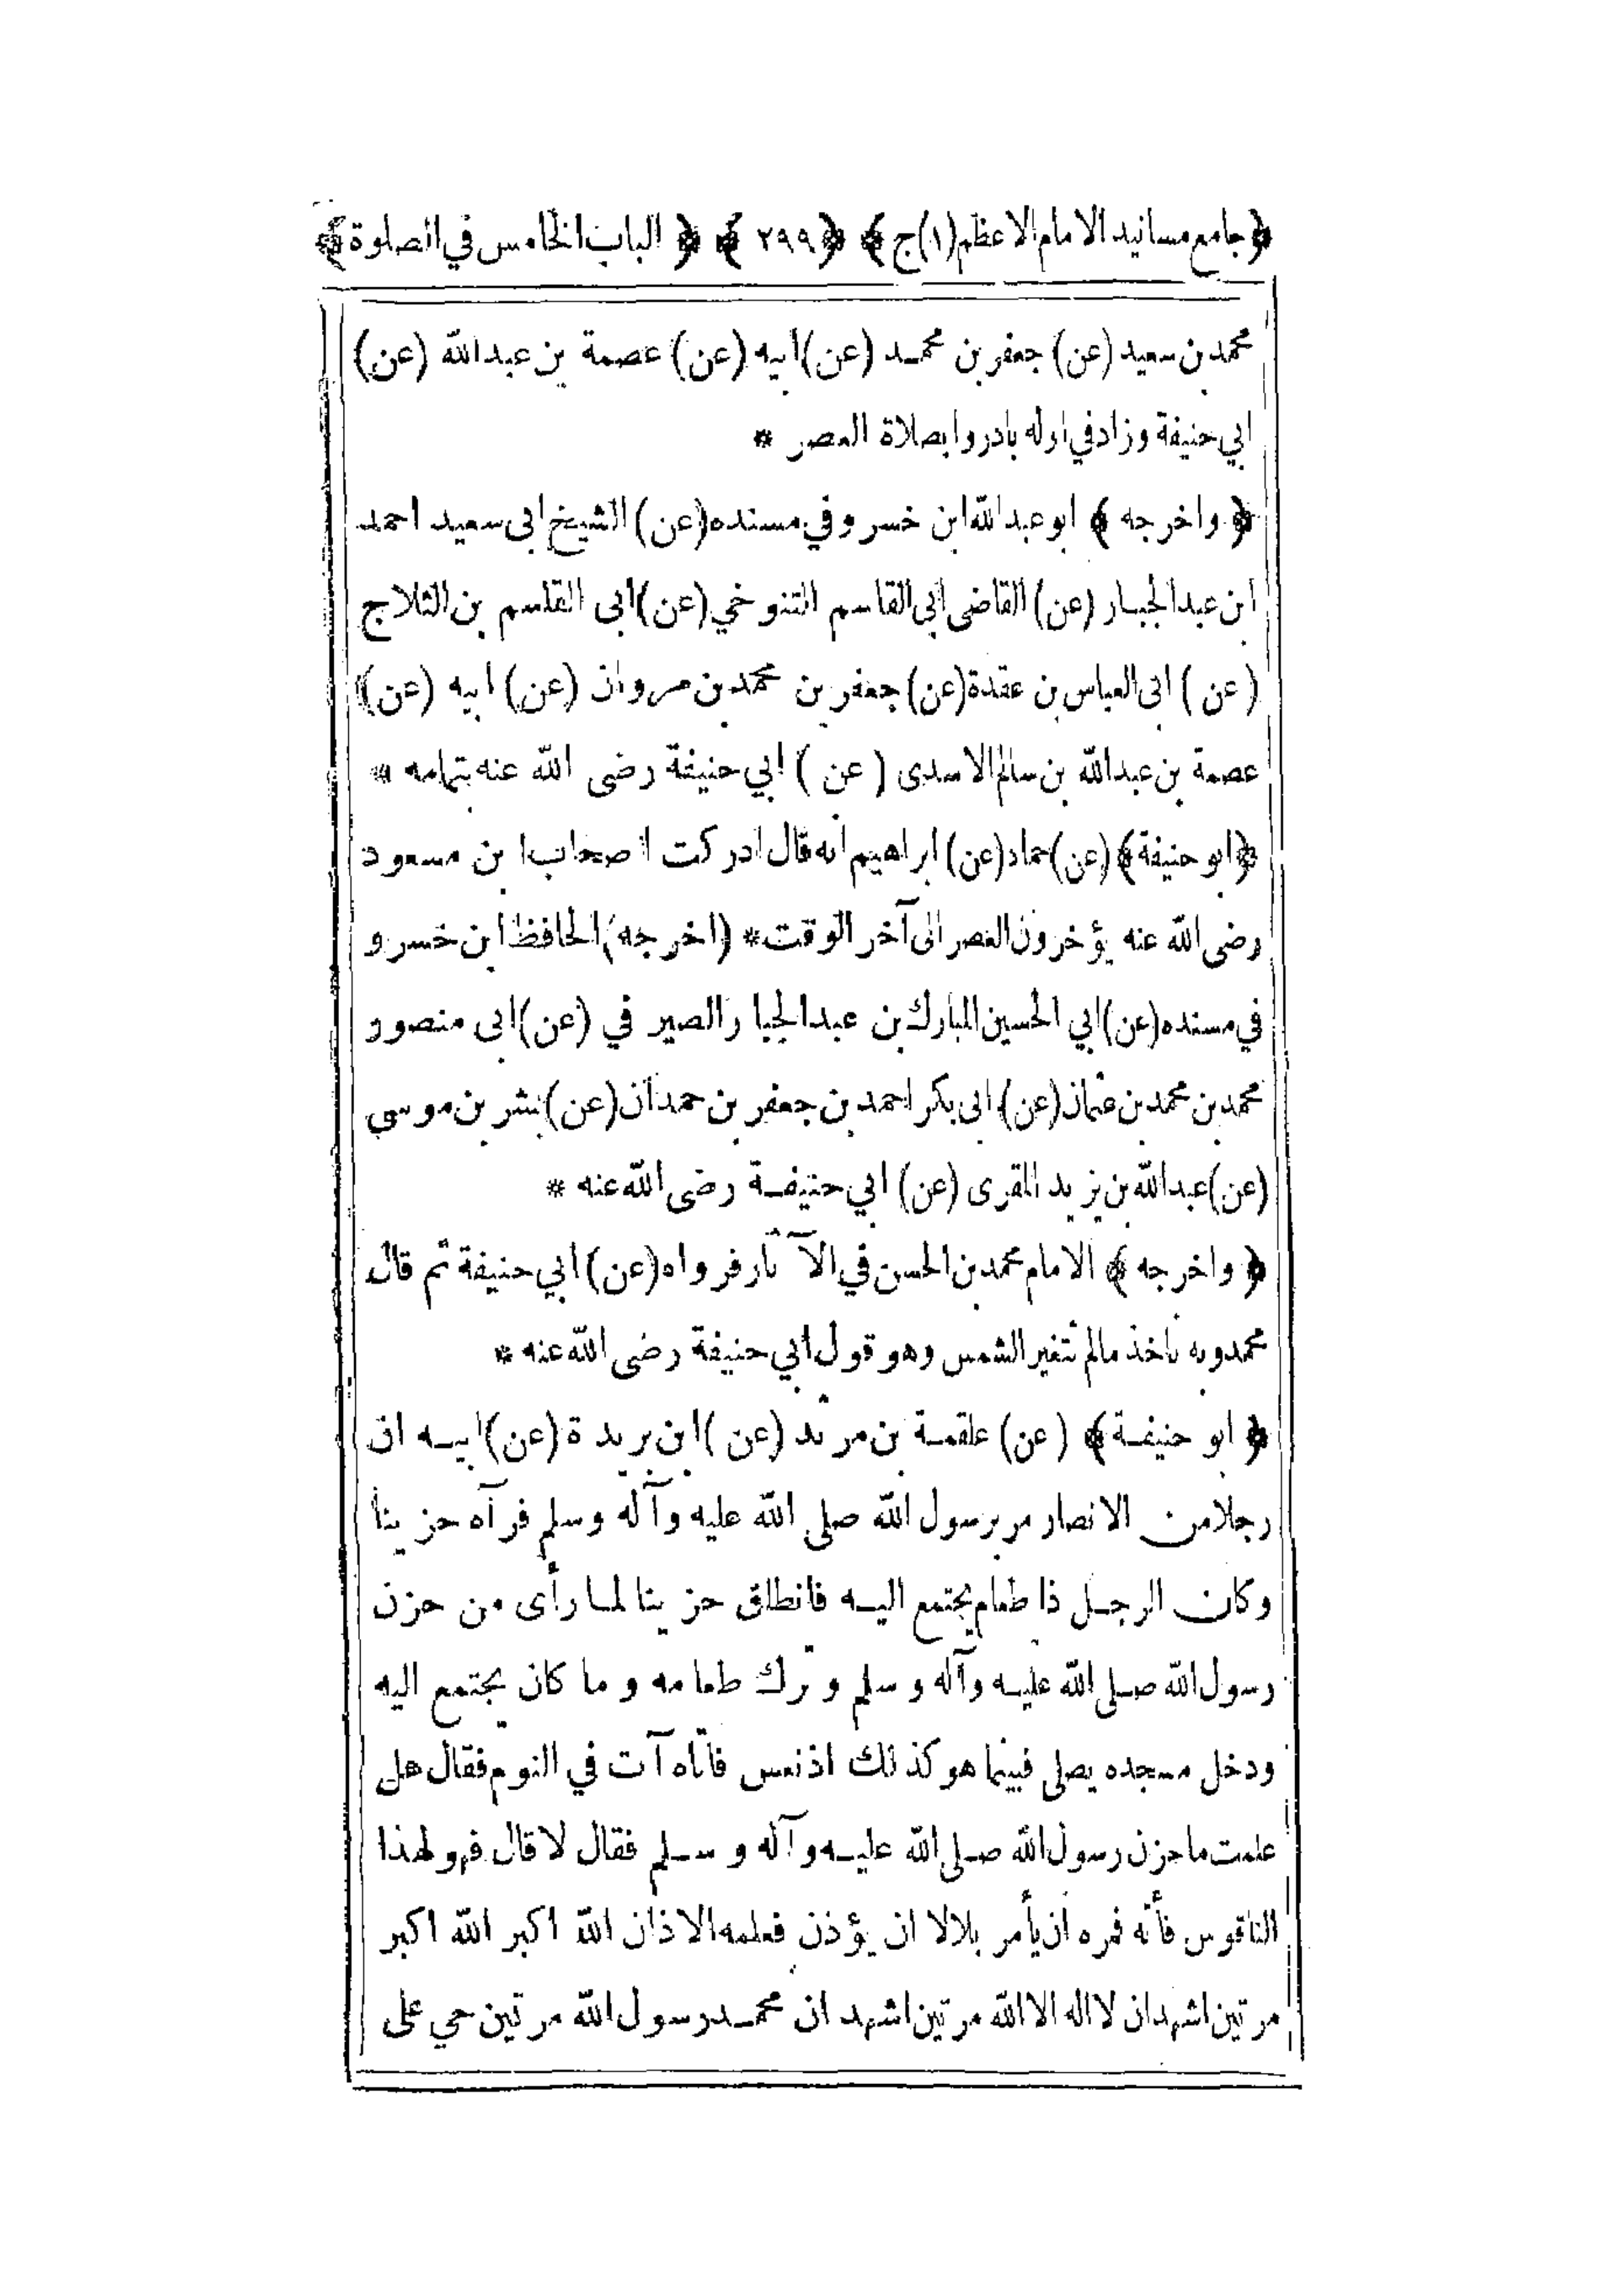 ﴿جامع مسانيد الامام الاعظم(١)ج﴾ ﴿٢٩٩﴾ ﴿الباب الخامس في الصلوة﴾
محمد بن سعيد (عن) جعفر بن محمد (عن) ابيه (عن) عصمة بن عبد الله (عن)
ابي حنيفة وزاد في اوله بادروا بصلاة العصر *
﴿واخرجه﴾ ابو عبد الله ابن خسرو في مسنده (عن) الشيخ ابى سعيد احمد
ابن عبد الجبار (عن) القاضى ابى القاسم التنوخي (عن) ابى القاسم بن الثلاج
(عن) ابى العباس بن عقدة (عن) جعفر بن محمد بن مروان (عن) ابيه (عن)
عصمة بن عبد الله بن سالم الاسدى (عن) ابي حنيفة رضى الله عنه بتمامه *
﴿ابو حنيفة﴾ (عن) حماد (عن) ابراهيم انه قال ادركت اصحاب ابن مسعود
رضى الله عنه يؤخرون العصر الى آخر الوقت * (اخرجه) الحافظ ابن خسرو
في مسنده (عن) ابي الحسين المبارك بن عبد الجبار الصير في (عن) ابى منصور
محمد بن محمد بن عثمان (عن) ابى بكر احمد بن جعفر بن حمدان (عن) بشر بن موسى
(عن) عبد الله بن يزيد المقرى (عن) ابي حنيفة رضى الله عنه *
﴿واخرجه﴾ الامام محمد بن الحسن في الآثار فرواه (عن) ابي حنيفة ثم قال
محمد وبه نأخذ مالم تتغير الشمس وهو قول ابي حنيفة رضى الله عنه *
﴿ابو حنيفة﴾ (عن) علقمة بن مرثد (عن) ابن بريدة (عن) ابيه ان
رجلا من الانصار مر برسول الله صلى الله عليه وآله وسلم فرآه حزينا
وكان الرجل ذا طعام يجتمع اليه فانطلق حزينا لما رأى من حزن
رسول الله صلى الله عليه وآله وسلم وترك طعامه وما كان يجتمع اليه
ودخل مسجده يصلى فبينما هو كذلك اذنعس فاتاه آت في النوم فقال هل
علمت ما حزن رسول الله صلى الله عليه وآله وسلم فقال لا قال فهو لهذا
الناقوس فأته فمره ان يأمر بلالا ان يؤذن فعلمه الاذان الله اكبر الله اكبر
مرتين اشهد ان لا اله الا الله مرتين اشهد ان محمد رسول الله مرتين حي على